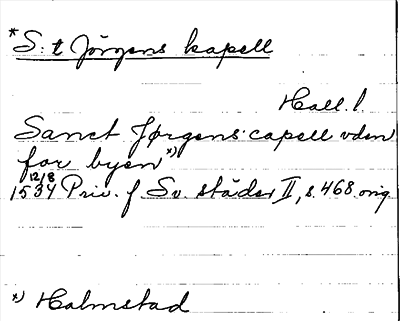 *S:t Jörgens kapell
Hall. l.
Sanct Jørgens capell vden
for byen *)
12/8
1534 Priv. f Sv. städer II, s. 468. orig.
*) Halmstad